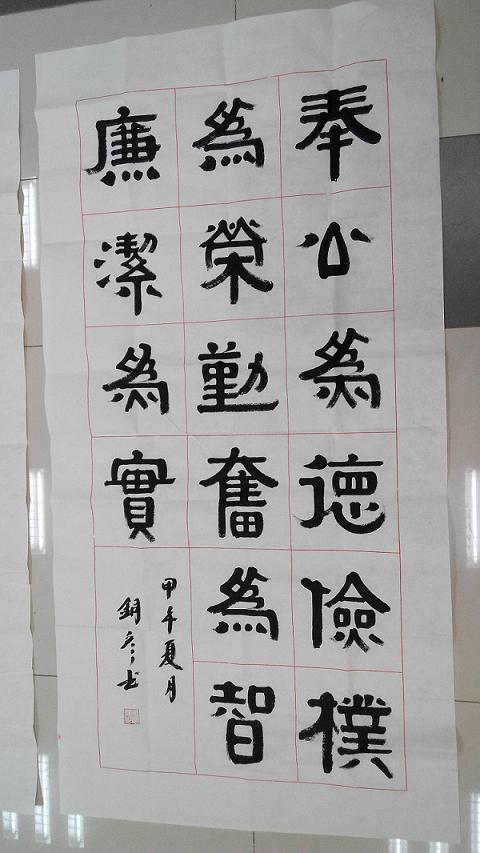 奉公為德儉樸
為榮勤奮為智
廉潔為實
甲午夏月
銅彦书